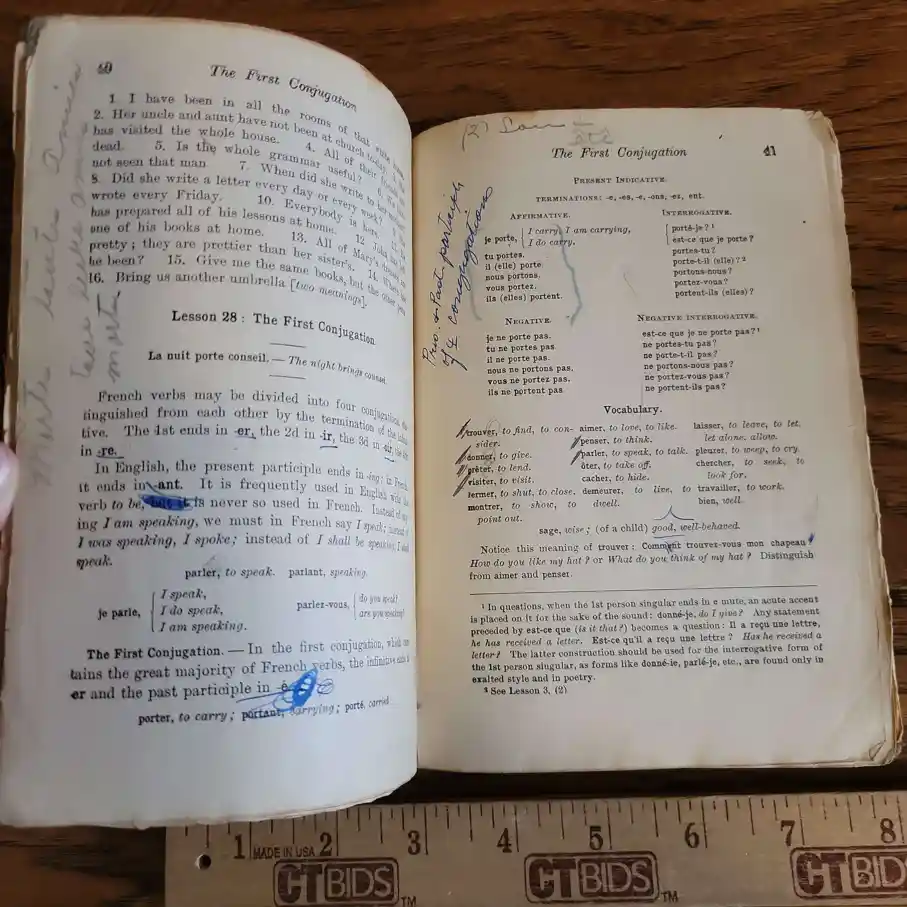 40
The First Conjugation
1. I have been in all the rooms of that
2. Her uncle and aunt have not been at church today.
has visited the whole house. 4. All of their
dead. 5. Is the whole grammar useful?
not seen that man 7. When did she write to her
8. Did she write a letter every day or every week?
wrote every Friday. 10. Everybody is here.
has prepared all of his lessons at home. 12 John has
one of his books at home. 13. All of Mary's
pretty; they are prettier than her sister's. 14.
he been? 15. Give me the same books, but the other
16. Bring us another umbrella [two meanings].
Lesson 28: The First Conjugation
La nuit porte conseil. — The night brings counsel.
French verbs may be divided into four
tinguished from each other by the termination of the
tive. The 1st ends in -er, the 2d in -ir, the 3d in
in -re.
In English, the present participle ends in -ing; in
it ends in -ant. It is frequently used in English with the
verb to be, but it is never so used in French. Instead of
ing I am speaking, we must in French say I speak; instead of
I was speaking, I spoke; instead of I shall be speaking, I
speak.
parler, to speak. parlant, speaking.
je parle, I speak, I do speak, I am speaking.
parlez-vous, do you speak? are you speaking?
The First Conjugation. — In the first conjugation, which
tains the great majority of French verbs, the infinitive ends in
er and the past participle in é
porter, to carry; portant, carrying; porté, carried
(2)
The First Conjugation
41
PRESENT INDICATIVE.
TERMINATIONS: -e, -es, -e, -ons, -ez, ent.
AFFIRMATIVE.
je porte, I carry, I am carrying, I do carry.
tu portes.
il (elle) porte
nous portons.
vous portez.
ils (elles) portent.
INTERROGATIVE.
porté-je?¹
est-ce que je porte?
portes-tu?
porte-t-il (elle)?²
portons-nous?
portez-vous?
portent-ils (elles)?
of 4 conjugations
NEGATIVE.
je ne porte pas.
tu ne portes pas.
il ne porte pas.
nous ne portons pas.
vous ne portez pas.
ils ne portent pas
NEGATIVE INTERROGATIVE.
est-ce que je ne porte pas?¹
ne portes-tu pas?
ne porte-t-il pas?
ne portons-nous pas?
ne portez-vous pas?
ne portent-ils pas?
Vocabulary.
trouver, to find, to con-
sider.
donner, to give.
prêter, to lend.
visiter, to visit.
fermer, to shut, to close.
montrer, to show, to
point out.
aimer, to love, to like.
penser, to think.
parler, to speak, to talk.
ôter, to take off.
cacher, to hide.
demeurer, to live, to
dwell.
laisser, to leave, to let,
let alone, allow.
pleurer, to weep, to cry.
chercher, to seek, to
look for.
travailler, to work.
bien, well.
sage, wise; (of a child) good, well-behaved.
Notice this meaning of trouver: Comment trouvez-vous mon chapeau?
How do you like my hat? or What do you think of my hat? Distinguish
from aimer and penser.
¹ In questions, when the 1st person singular ends in e mute, an acute accent
is placed on it for the sake of the sound: donné-je, do I give? Any statement
preceded by est-ce que (is it that?) becomes a question: Il a reçu une lettre,
he has received a letter. Est-ce qu'il a reçu une lettre? Has he received a
letter? The latter construction should be used for the interrogative form of
the 1st person singular, as forms like donné-je, parlé-je, etc., are found only in
exalted style and in poetry.
² See Lesson 3, (2)
1 2 3 4 5 6 7 8
MADE IN USA
CTBIDS TM
CTBIDS TM
CTBIDS